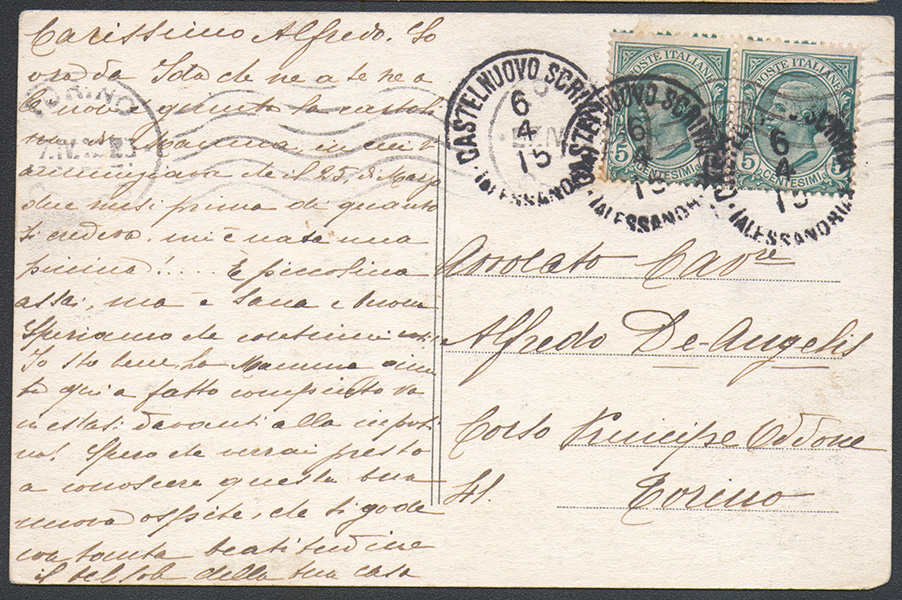 Carissimo Alfredo. Io
ora da Ida che ne a te ne a
le nove è giunta la cartoli
na di Mamma, in cui v
annunziava che il 25, Marzo
due mesi prima di quanto
si credeva, mi è nata una
piccina! ..... E piccolina
assai, ma è sana e buona
Speriamo che continui così.
Io sto bene, la Mamma
qui a fatto compinto va
in estasi davanti alla
Spero che verrai presto
a conoscere questa tua
nuova ospite, che si gode
con tanta beatitudine
il bel sole della tua casa
TORINO
CASTELNUOVO SCRIVIA
6
4
15
(ALESSANDRIA)
CASTELNUOVO SCRIVIA
6
4
15
(ALESSANDRIA)
SCRIVIA
6
4
15
(ALESSANDRIA)
POSTE ITALIANE
5 CENTESIMI
POSTE ITALIANE
5 CENTESIMI 5
Avvocato Cav.re
Alfredo De-Angelis
Corso Principe Oddone
41. Torino